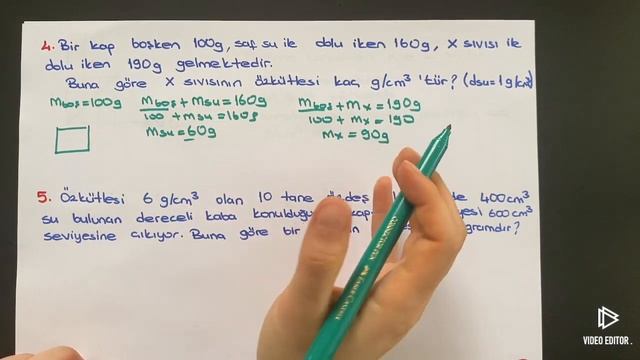 4. Bir kap boşken 100g, saf su ile dolu iken 160g, X sıvısı ile
dolu iken 190g gelmektedir.
Buna göre X sıvısının özkütlesi kaç g/cm³ 'tür? (dsu=1g/cm³)
mboş=100g mboş+msu=160g mboş+mx=190g
100 + msu=160g 100 + mx=190
msu=60g mx=90g
5. Özkütlesi 6 g/cm³ olan 10 tane 400cm³
su bulunan dereceli kaba konulduğu 600cm³
seviyesine çıkıyor. Buna göre bir gramdır?
VIDEO EDITOR.